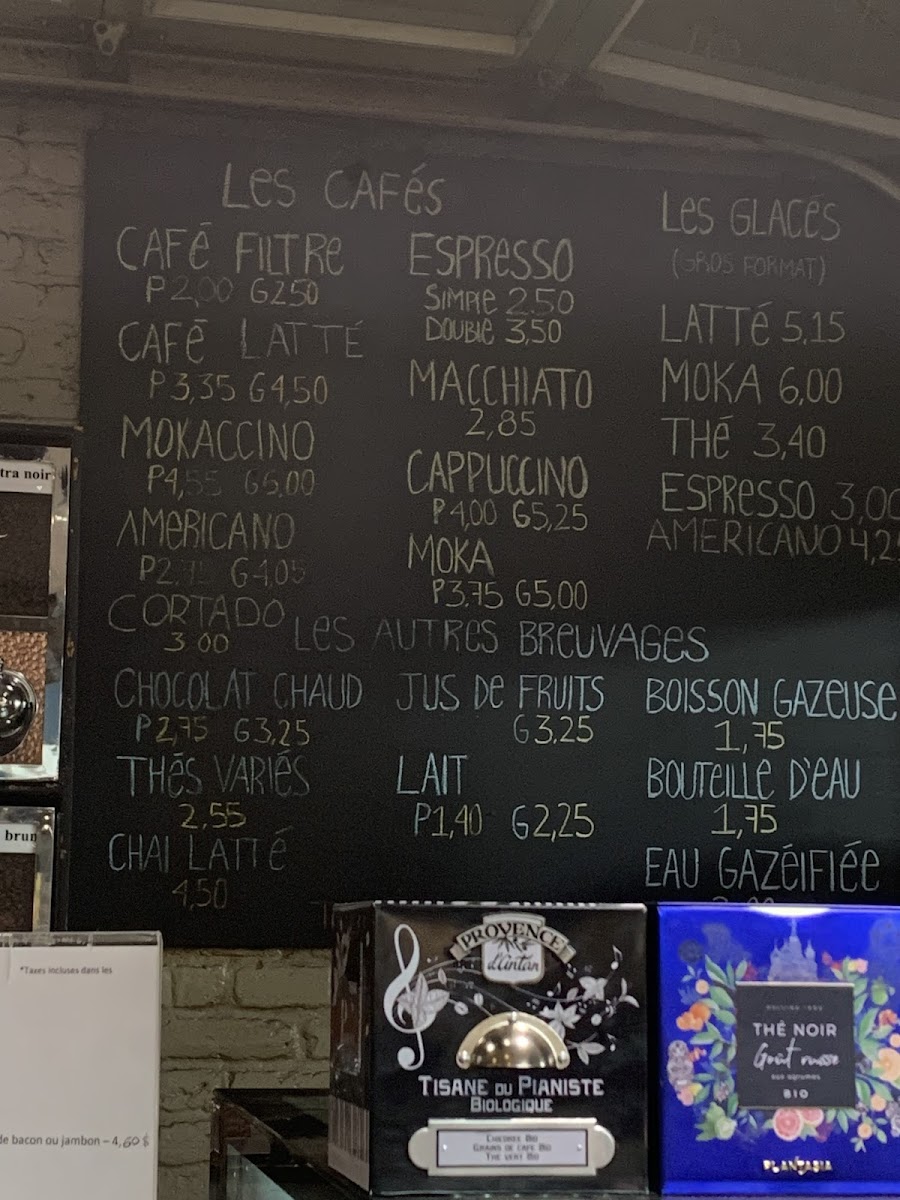 LES CAFÉS
CAFÉ FILTRE
P2,00 G2,50
CAFÉ LATTÉ
P3,35 G4,50
MOKACCINO
P4,55 G5,00
AMERICANO
G4,05
CORTADO
3.00
ESPRESSO
SIMPLE 2.50
DOUBLE 3,50
MACCHIATO
2,85
CAPPUCCINO
P4,00 G5,25
MOKA
P3.75 G5,00
LES GLACÉS
(GROS FORMAT)
LATTÉ 5,15
MOKA 6,00
THÉ 3,40
ESPRESSO 3,00
AMERICANO
LES AUTRES BREUVAGES
CHOCOLAT CHAUD
P2,75 G3,25
THÉS VARIÉS
2,55
CHAI LATTÉ
4,50
JUS DE FRUITS
G3.25
LAIT
P1,40 G2,25
BOISSON GAZEUSE
1,75
BOUTEILLE D'EAU
1,75
EAU GAZÉIFIÉE
tra noir
brun
*Taxes incluses dans les
de bacon ou jambon – 4,60 $
PROVENCE
d'Antan
TISANE DU PIANISTE
BIOLOGIQUE
CHICORÉE BIO
GRAINS DE CAFÉ BIO
THÉ VERT BIO
THÉ NOIR
Goût russe
aux agrumes
BIO
PLANTASIA